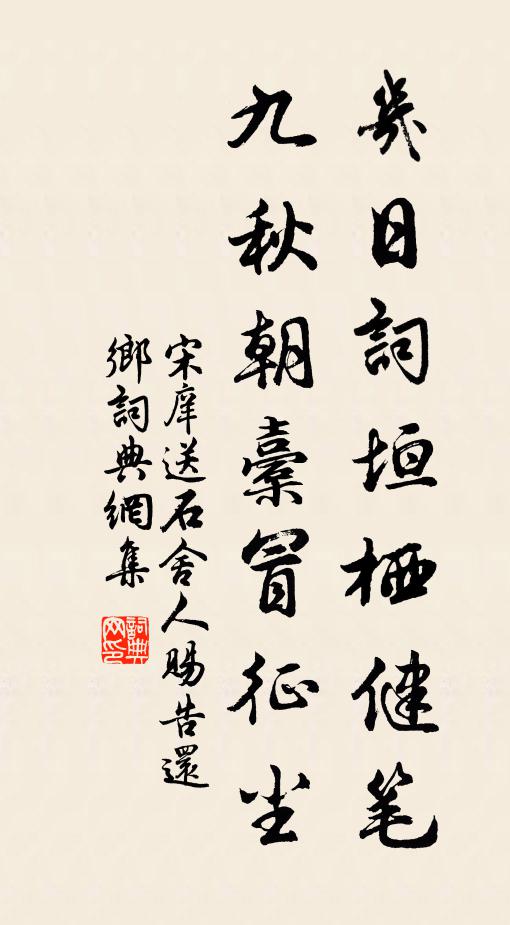 幾日詞垣栖健笔
九秋朝橐冒征尘
宋庠送石舍人賜告還
鄉詞典網集
詞典网印